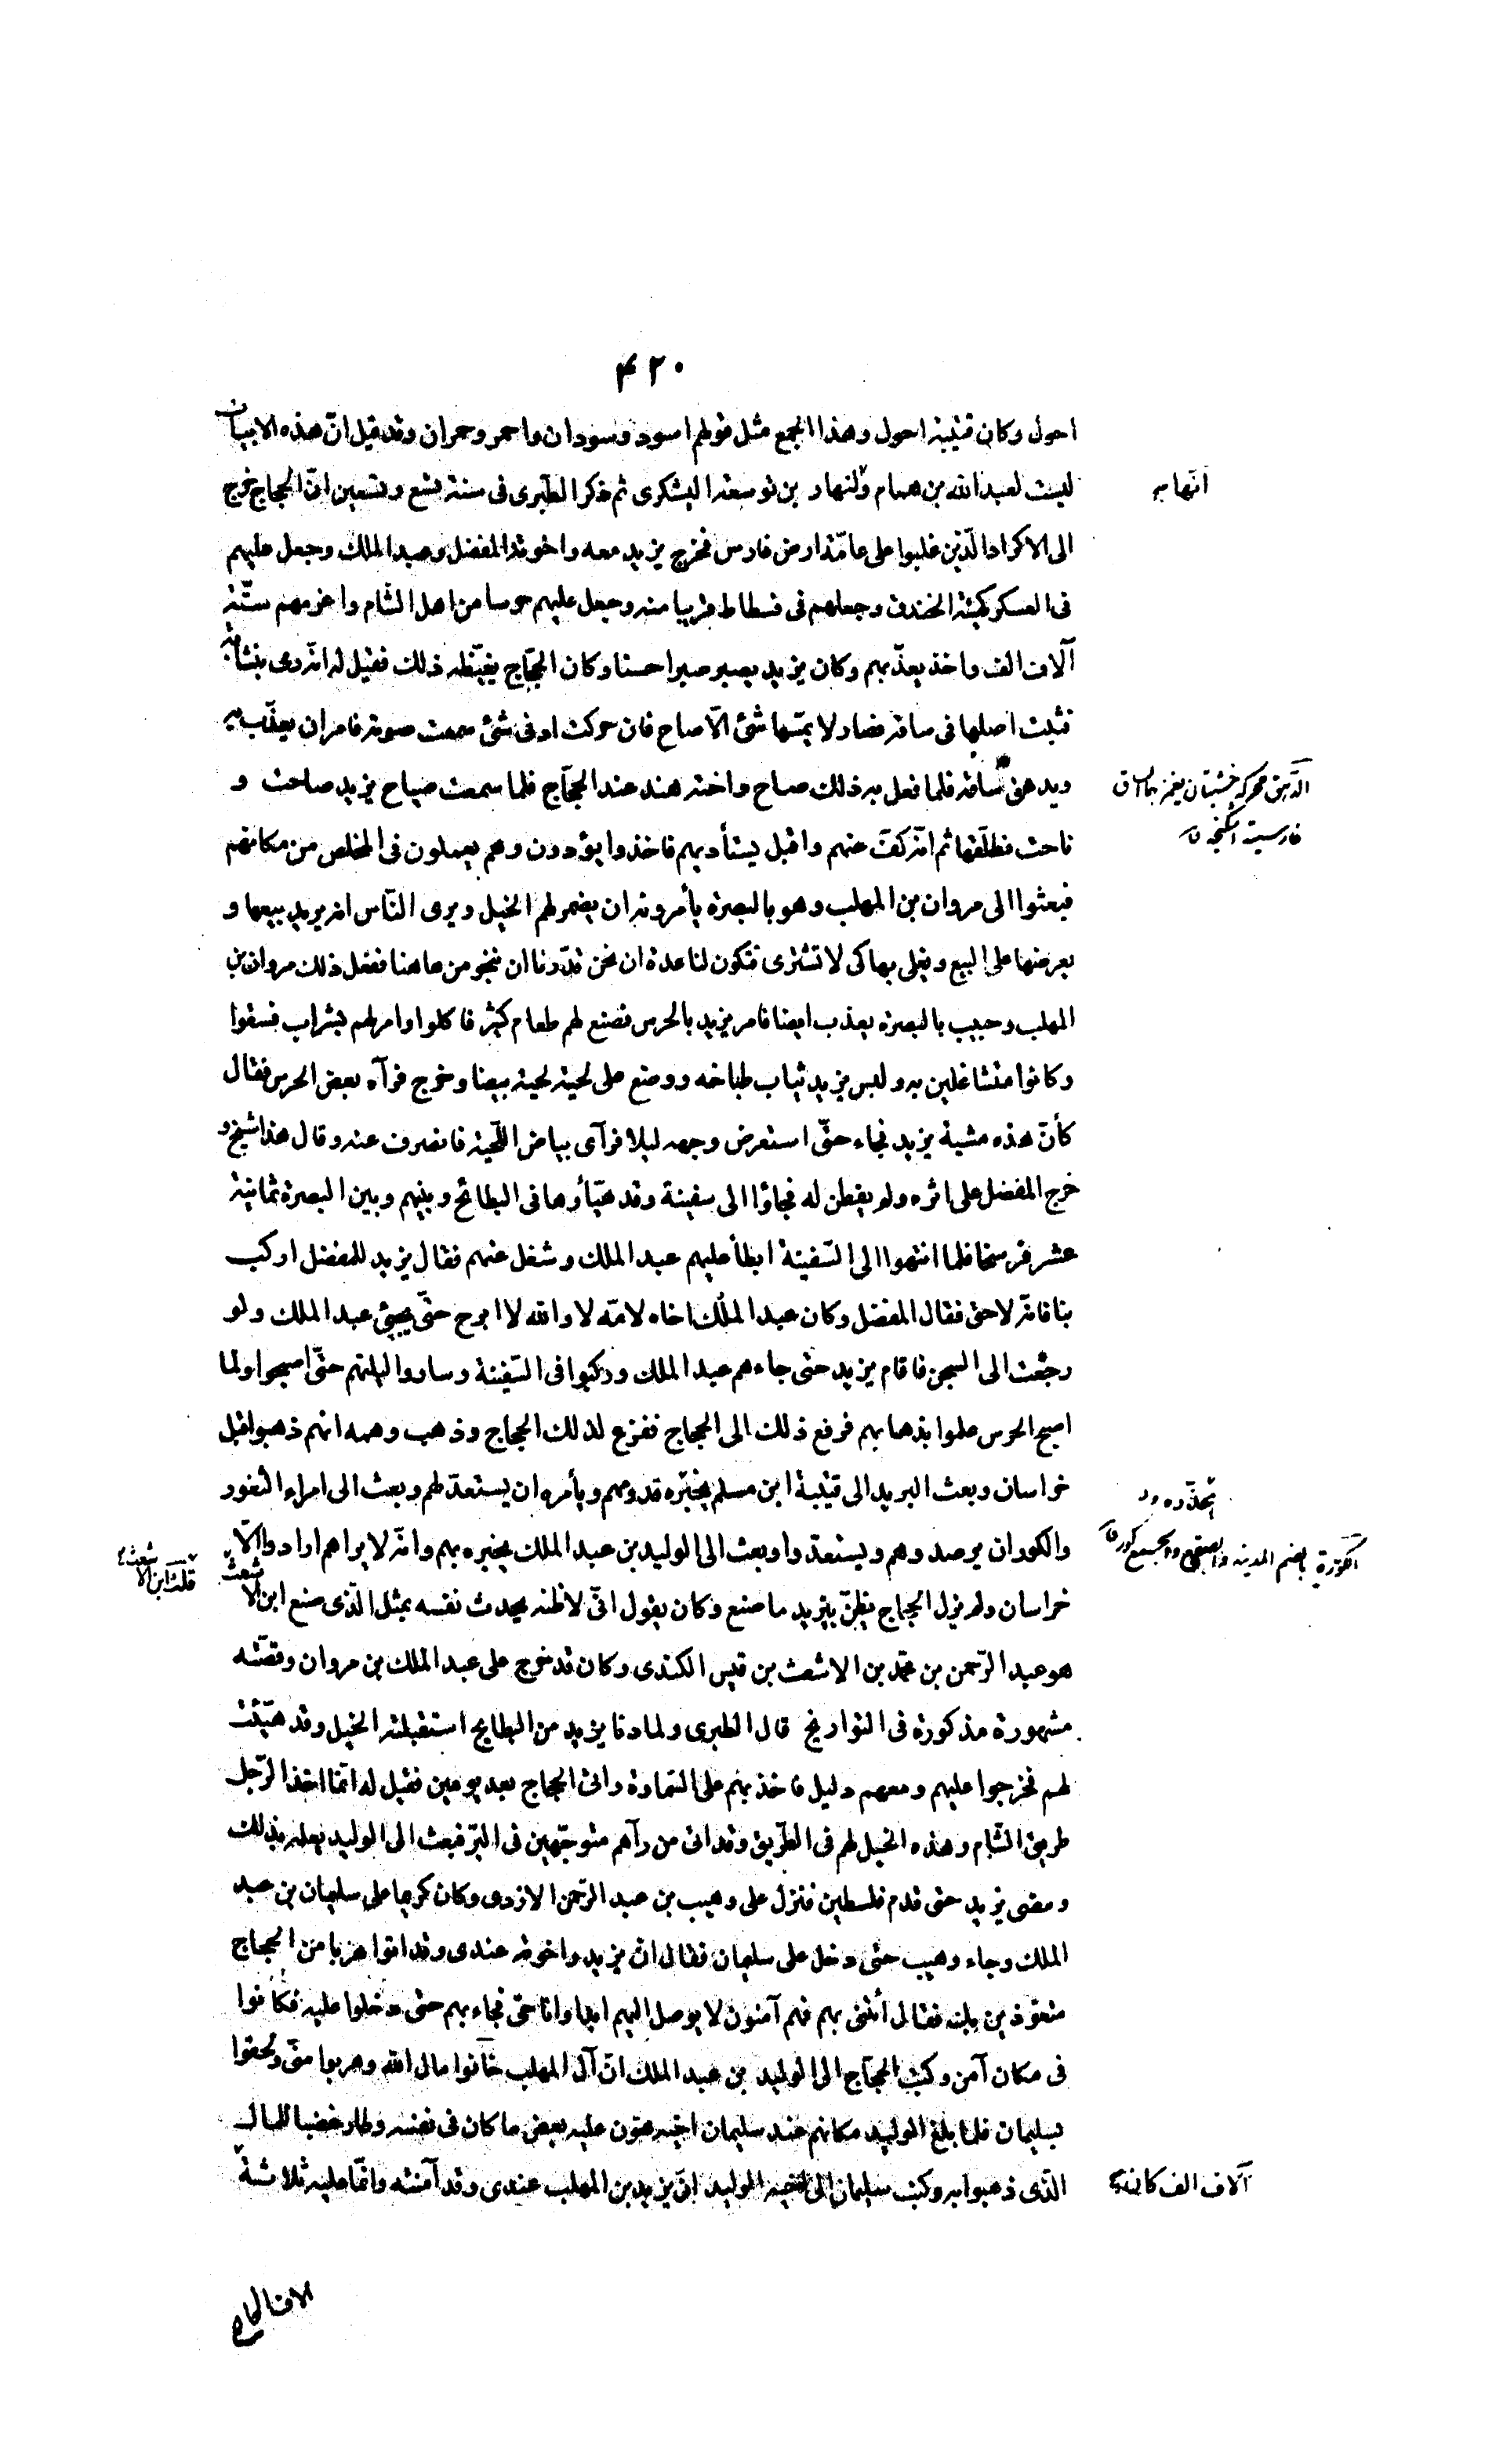 ۴۲۰
احول وكان قتيبة احول وهذا الجمع مثل قولهم اسود وسودان واحمر وحمران وقد قيل انّ هذه الابيات
ليست لعبد الله بن همام ولنهار بن توسعة اليشكرى ثم ذكر الطبرى فى سنة تسع وتسعين انّ الحجاج خرج
انّها به
الى الاكراد الّذين غلبوا على عامّة ارض فارس فخرج يزيد معه واخوته المفضل وعبد الملك وجعل عليهم
فى العسكر كهيئة الخندق وجعلهم فى فسطاط قريبا منه وجعل عليهم حرسا من اهل الشّام واغرمهم ستّة
آلاف الف واخذ يعذّبهم وكان يزيد يصبر صبرا حسنا وكان الحجّاج يغيّظه ذلك فقيل له انّه رمى بنشابة
فثبت اصلها فى ساقه فصار لا يمسّها شئ الّا صاح فان حركت ادنى شئ سمعت صوته فامر ان يعذّب به
ويدهق ساقه فلما فعل به ذلك صاح واخته هند عند الحجّاج فلما سمعت صياح يزيد صاحت و
الدّهق محركة خشبتان يغمز بهما الساق
فارسيته اشكنجه ق
ناحت فطلّقها ثم انّه كفّ عنهم واقبل يستأديهم فاخذوا يؤدون وهم يعملون فى المخلص من مكانهم
فبعثوا الى مروان بن المهلب وهو بالبصرة يأمرونه ان يضمر لهم الخيل ويرى النّاس انه يريد بيعها و
يعرضها على البيع ويغلى بها كى لا تشترى فتكون لنا عدة ان نحن قدّرنا ان ننجو من هاهنا ففعل ذلك مروان بن
المهلب وحبيب بالبصرة يعذب ايضا فامر يزيد بالحرس فصنع لهم طعام كثير فاكلوا وامر لهم بشراب فسقوا
وكانوا متشاغلين به ولبس يزيد ثياب طباخه ووضع على لحيته لحية بيضا وخرج فرآه بعض الحرس فقال
كأنّ هذه مشية يزيد فجاء حتّى استعرض وجهه ليلا فرآى بياض اللّحية فانصرف عنه وقال هذا شيخ و
خرج المفضل على اثره ولم يفطن له فجاؤا الى سفينة وقد هيّأوها فى البطائح وبينهم وبين البصرة ثمانية
عشر فرسخا فلما انتهوا الى السّفينة ابطأ عليهم عبد الملك وشغل عنهم فقال يزيد للمفضل اركب
بنا فانّه لاحق فقال المفضل وكان عبد الملك اخاه لامّه لا والله لا ابرح حتّى يجئ عبد الملك ولو
رجعت الى السجن فاقام يزيد حتى جاءهم عبد الملك وركبوا فى السّفينة وساروا ليلتهم حتّى اصبحوا ولما
اصبح الحرس علموا بذهابهم فرفع ذلك الى الحجاج ففزع لذلك الحجاج وذهب وهمه انهم ذهبوا قبل
خراسان وبعث البريد الى قتيبة ابن مسلم يخبّره قدومهم ويأمره ان يستعدّ لهم وبعث الى امراء الثغور
والكور ان يرصدوهم ويستعدّوا وبعث الى الوليد بن عبد الملك يخبره بهم وانّه لا يراهم ارادوا الّا
الكورة بالضم المدينة والصقع والجمع كور ق
قلت ابن الاشعث
خراسان ولم يزل الحجاج يظنّ بيزيد ما صنع وكان يقول انّى لاظنه يحدث نفسه بمثل الّذى صنع ابن الاشعث
هو عبد الرّحمن بن محمّد بن الاشعث بن قيس الكندى وكان قد خرج على عبد الملك بن مروان وقصّته
مشهورة مذكورة فى التواريخ قال الطبرى ولما دنا يزيد من البطايح استقبلته الخيل وقد هيّئت
لهم فخرجوا عليهم ومعهم دليل فاخذ بهم على السّماوة واتى الحجاج بعد يومين فقيل له انّما اخذ الرّجل
طريق الشّام وهذه الخيل لهم فى الطّريق وقد اتى من رآهم متوجّهين فى البرّ فبعث الى الوليد يعلمه بذلك
ومضى يزيد حتى قدم فلسطين فنزل على وهيب بن عبد الرّحمن الازدى وكان كريما على سليمان بن عبد
الملك وجاء وهيب حتى دخل على سليمان فقال انّ يزيد واخوته عندى وقد اتوا هربا من الحجاج
متعوّذين بك فقال أئتنى بهم فهم آمنون لا يوصل اليهم ابدا وانا حىّ فجاء بهم حتى دخلوا عليه فكانوا
فى مكان آمن وكتب الحجّاج الى الوليد بن عبد الملك انّ آل المهلب خانوا مال الله وهربوا منّى ولحقوا
بسليمان فلمّا بلغ الوليد مكانهم عند سليمان اخيه هوّن عليه بعض ما كان فى نفسه وطار غضبا للمال
الّذى ذهبوا به وكتب سليمان الى اخيه الوليد انّ يزيد بن المهلب عندى وقد آمنته وانّما عليه ثلاثة
آلاف الف كان